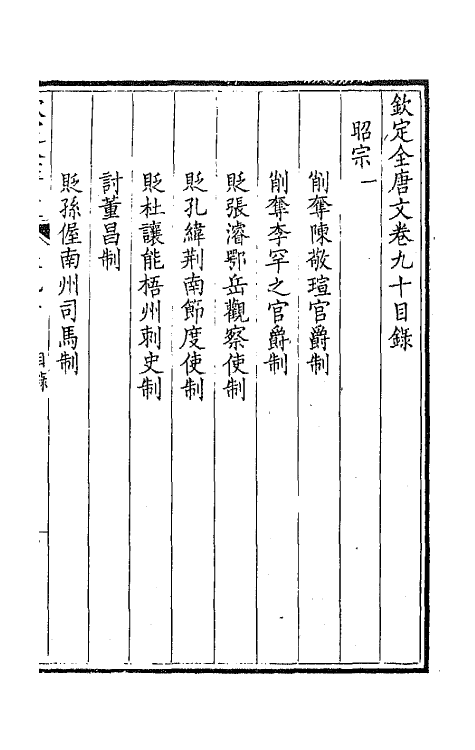 欽定全唐文卷九十目錄
昭宗一
削奪陳敬瑄官爵制
削奪李罕之官爵制
貶張濬鄂岳觀察使制
貶孔緯荆南節度使制
貶杜讓能梧州刺史制
討董昌制
貶孫偓南州司馬制
目錄